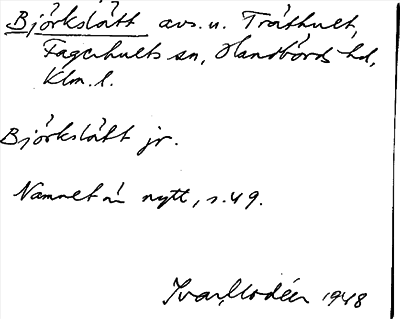 Björkslätt avs. u. Tråthult,
Fagerhults sn, Handbörds hd,
Klm. l.
Björkslätt jr.
Namnet är nytt, s. 49.
Ivar Modéer 1948